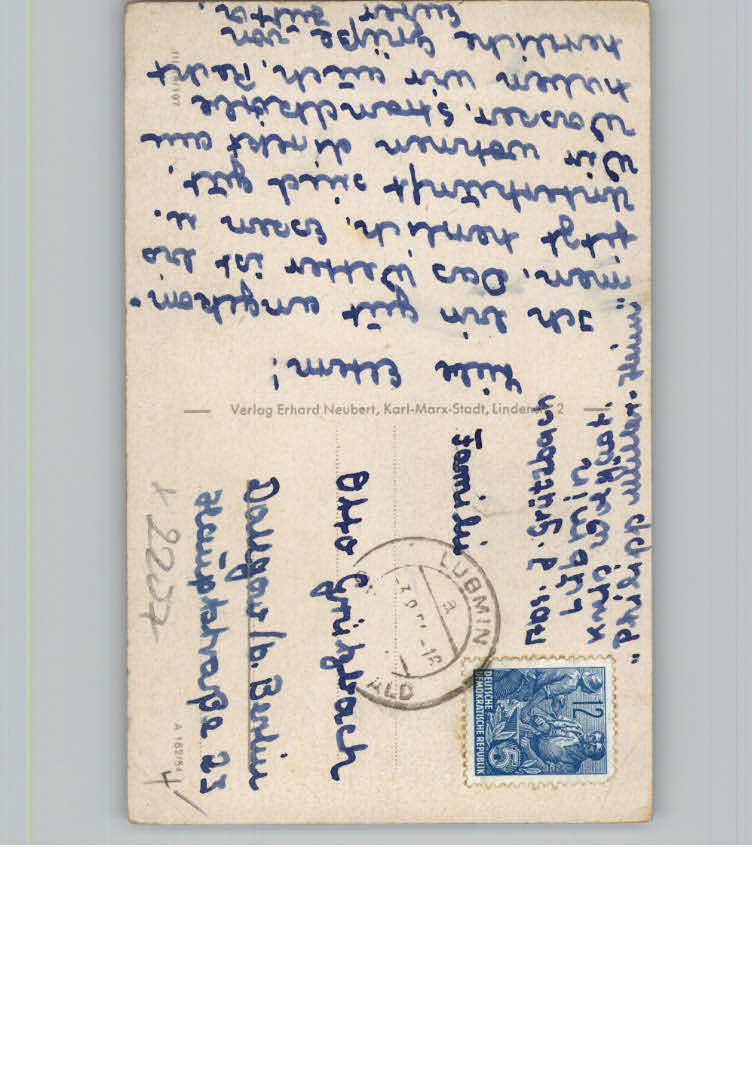 Liebe Eltern!
Ich bin gut angekom-
men. Das Wetter ist bis
jetzt herrlich. Essen u.
Unterkunft sind gut.
Wir wohnen direkt am
Wasser. Strandkörbe
haben wir auch. Recht
herzliche Grüße von
Eurer Jutta.
Abs. J. Grützbach
Lubmin
Philipp Müller
Verlag Erhard Neubert, Karl-Marx-Stadt, Lindenstr. 2
Familie
Otto Grützbach
Dallgow /b. Berlin
Hauptstraße 23
LUBMIN
ALD
12
DEUTSCHE
DEMOKRATISCHE REPUBLIK
5
A 162/54
+ 2207
4/